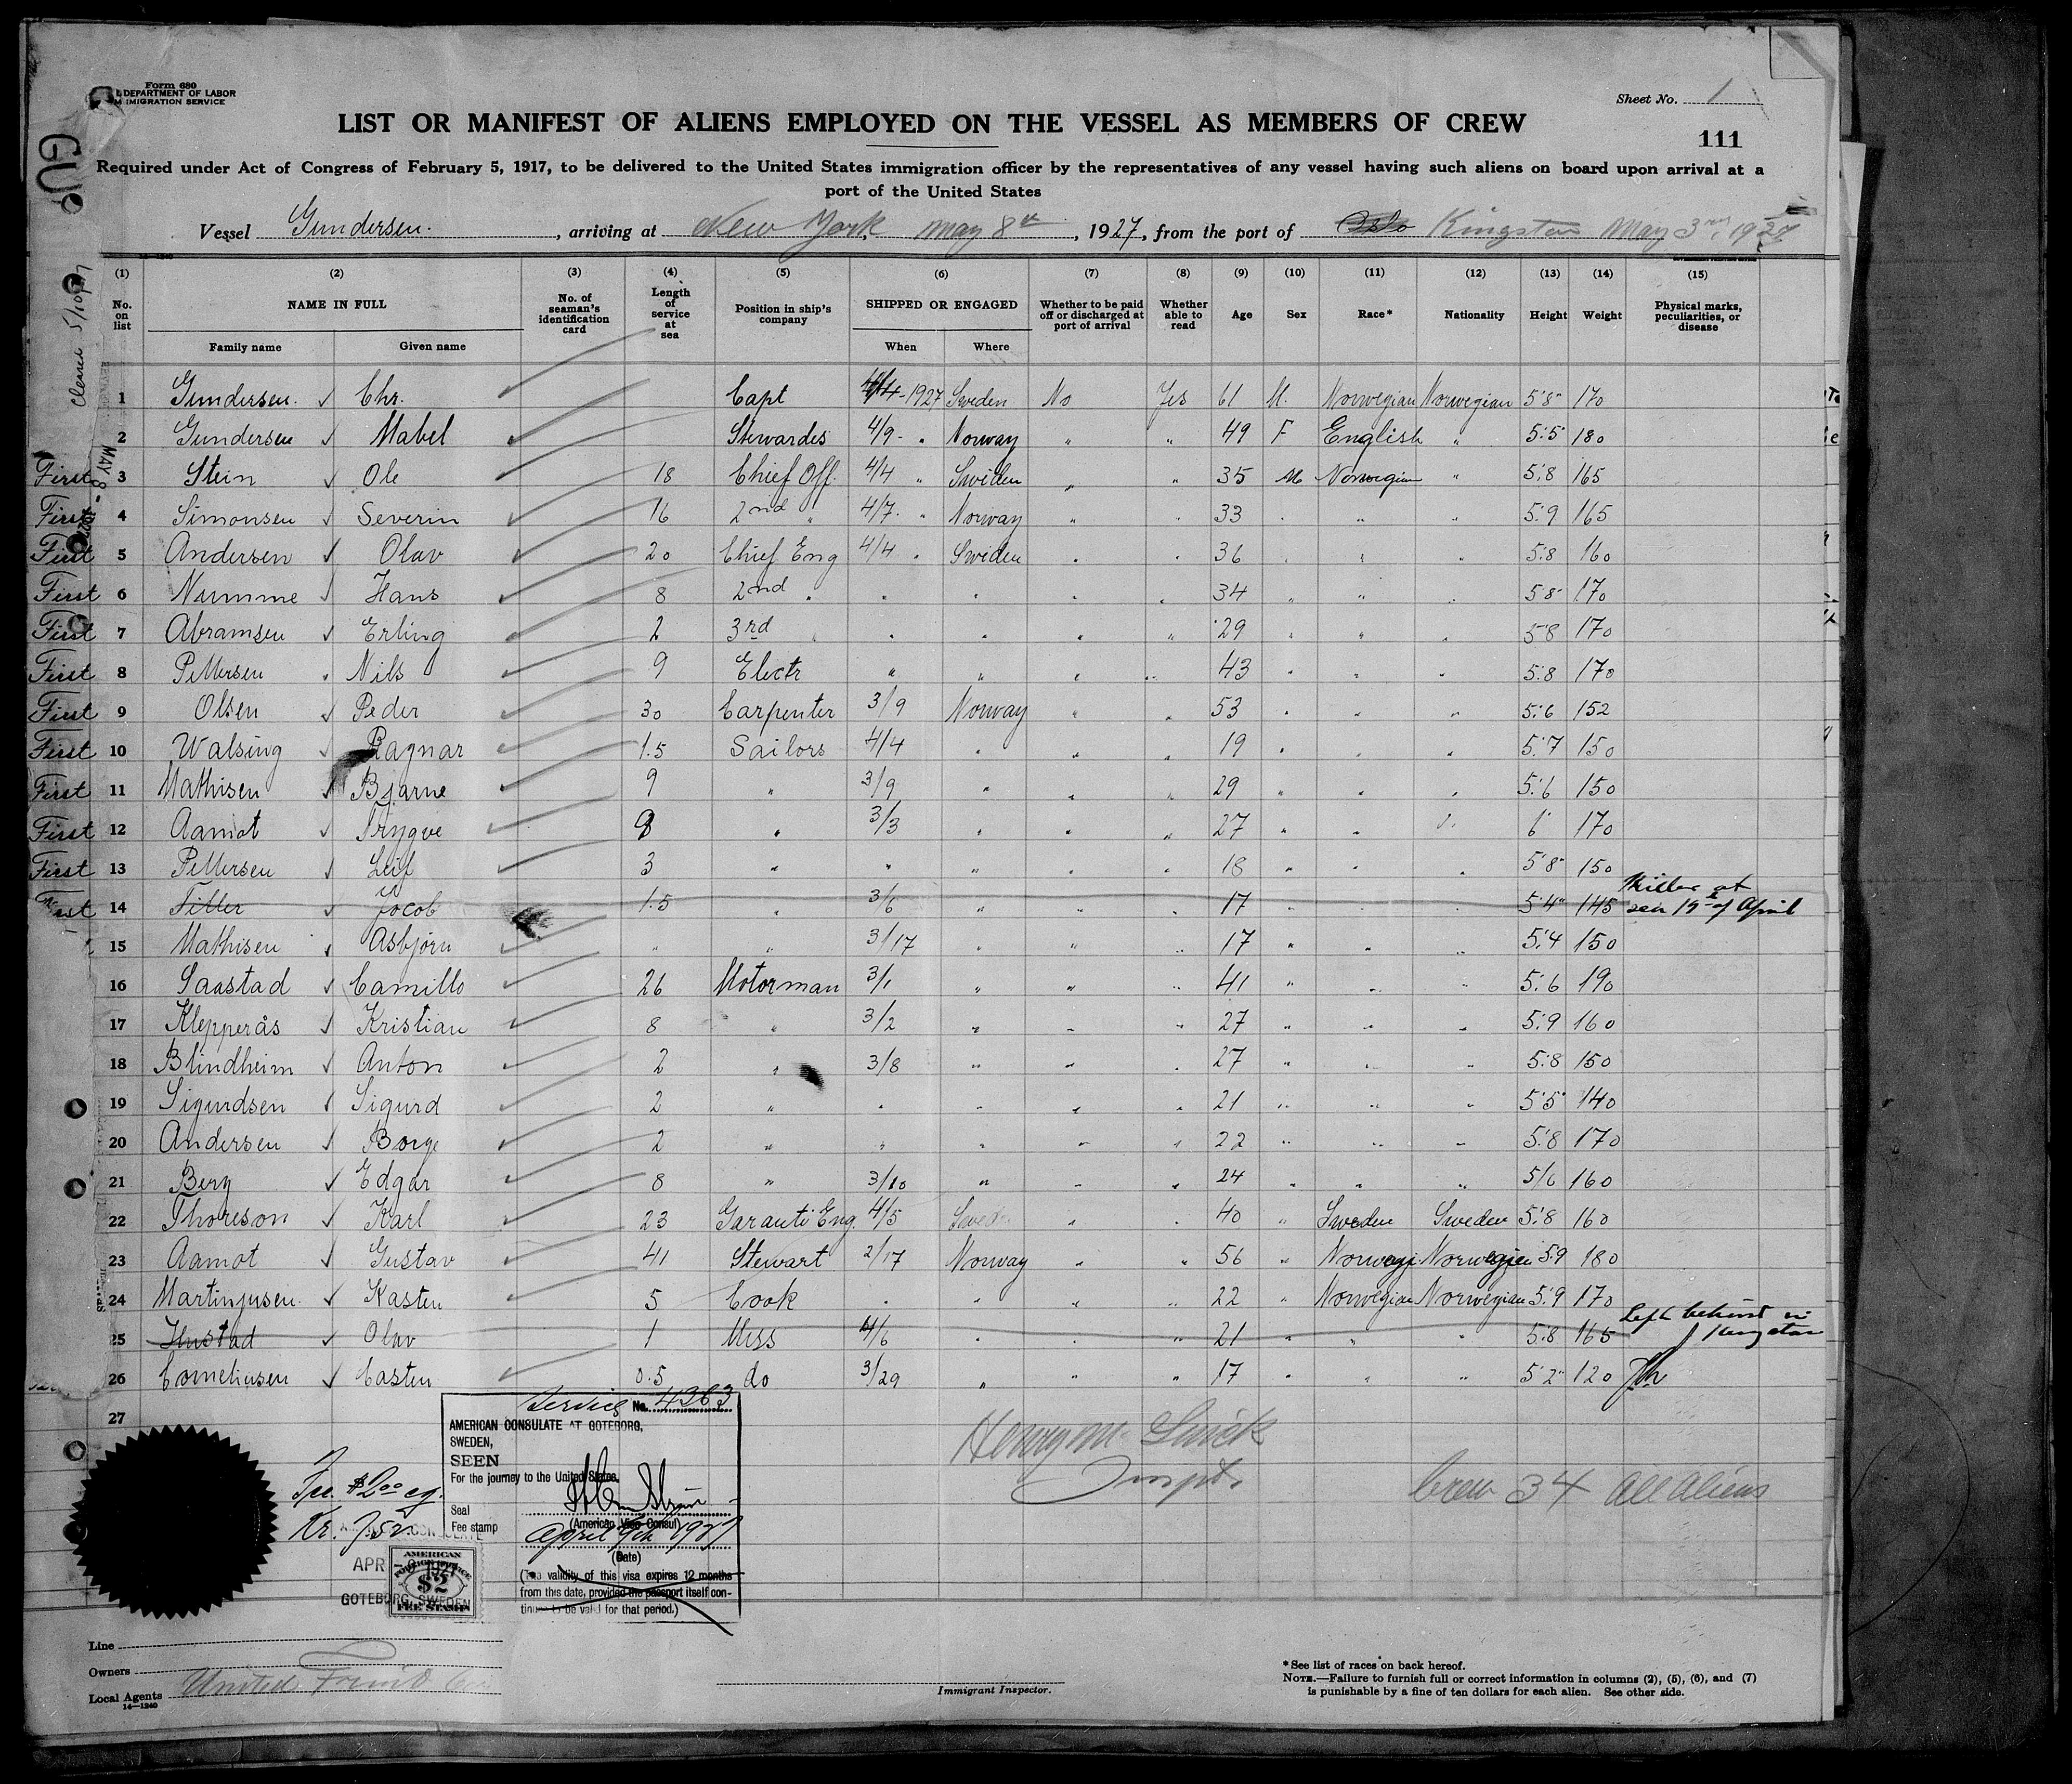 Form 680
DEPARTMENT OF LABOR
IMMIGRATION SERVICE
Sheet No. 1
LIST OR MANIFEST OF ALIENS EMPLOYED ON THE VESSEL AS MEMBERS OF CREW
111
Required under Act of Congress of February 5, 1917, to be delivered to the United States immigration officer by the representatives of any vessel having such aliens on board upon arrival at a
port of the United States
Vessel Gundersen. , arriving at New York, May 8th , 1927, from the port of Oslo Kingston May 3rd, 1927
(1) (2) (3) (4) (5) (6) (7) (8) (9) (10) (11) (12) (13) (14) (15)
No. on list NAME IN FULL No. of seaman's identification card Length of service at sea Position in ship's company SHIPPED OR ENGAGED Whether to be paid off or discharged at port of arrival Whether able to read Age Sex Race* Nationality Height Weight Physical marks, peculiarities, or disease
Family name Given name When Where
1 Gundersen. ✓ Chr. Capt 4/4-1927 Sweden No Yes 61 M. Norwegian Norwegian 5'8" 170
2 Gundersen ✓ Mabel Stewardes 4/9 - " Norway " " 49 F English " 5:5 180
First 3 Stein ✓ Ole 18 Chief Off. 4/4 " Sweden " " 35 M Norwegian " 5:8 165
First 4 Simonsen ✓ Severin 16 2nd " 4/7. " Norway " " 33 " " " 5:9 165
First 5 Andersen ✓ Olav 20 Chief Eng 4/4 " Sweden " " 36 " " " 5:8 160
First 6 Numme ✓ Hans 8 2nd " " " " " 34 " " " 5 8" 170
First 7 Abramsen ✓ Erling 2 3rd " " " " " 29 " " " 5"8 170
First 8 Pettersen " Nils 9 Electr " " " " 43 " " " 5:8 170
First 9 Olsen ✓ Peder 30 Carpenter 3/9 Norway " " 53 " " " 5:6 152
First 10 Walsing ✓ Ragnar 1.5 Sailors 4/4 " " " 19 " " " 5:7 150
First 11 Mathisen ✓ Bjarne 9 " 3/9 " " " 29 " " " 5:6 150
First 12 Aamot ✓ Trygve 9 " 3/3 " " " 27 " " " 6' 170
First 13 Pettersen ✓ Leif 3 " " " " " 18 " " " 5'8" 150
First 14 Filler ✓ Jocob 1.5 " 3/6 " " " 17 " " " 5'4" 145 Killed at
sea 19th of April
15 Mathisen ✓ Asbjørn " " 3/17 " " " 17 " " " 5:4 150
16 Saastad ✓ Camillo 26 Motorman 3/1 " " " 41 " " " 5:6 190
17 Klepperås ✓ Kristian 8 " 3/2 " " " 27 " " " 5:9 160
18 Blindheim ✓ Anton 2 " 3/8 " " " 27 " " " 5:8 150
19 Sigurdsen ✓ Sigurd 2 " " " " " 21 " " " 5'5" 140
20 Andersen ✓ Borge 2 " " " " " 22 " " " 5:8 170
21 Berg ✓ Edgar 8 " 3/10 " " " 24 " " " 5/6 160
22 Thoreson ✓ Karl 23 Garanti Eng. 4/5 Sweden " " 40 " Sweden Sweden 5:8 160
23 Aamot ✓ Gustav 41 Stewart 2/17 Norway " " 56 " Norwegi Norwegian 5.9 180
24 Martinjusen. ✓ Kasten 5 Cook " " " " 22 " Norwegian Norwegian 5:9 170
25 Hustad ✓ Olav 1 Mess 4/6 " " " 21 " " " 5:8 165 Left behind in
Kingston
26 Corneliusen ✓ Casten 0.5 do 3/29 " " " 17 " " " 5'2" 120
27
Service No. 4363
AMERICAN CONSULATE AT GOTEBORG,
SWEDEN,
SEEN
For the journey to the United States.
Seal
(American Vice Consul)
Fee stamp
April 9th 1927
(Date)
(The validity of this visa expires 12 months
from this date, provided the passport itself con-
tinues to be valid for that period.)
Fee $2.00 eq.
Kr. 7.52.
APR 1927
GOTEBORG, SWEDEN
AMERICAN
$2
FEE STAMP
Inspt.
Crew 34 All Aliens
Line
Owners
Local Agents United Fruit Co
14—1240
Immigrant Inspector.
*See list of races on back hereof.
NOTE.—Failure to furnish full or correct information in columns (2), (5), (6), and (7)
is punishable by a fine of ten dollars for each alien. See other side.
MAY - 8 1927